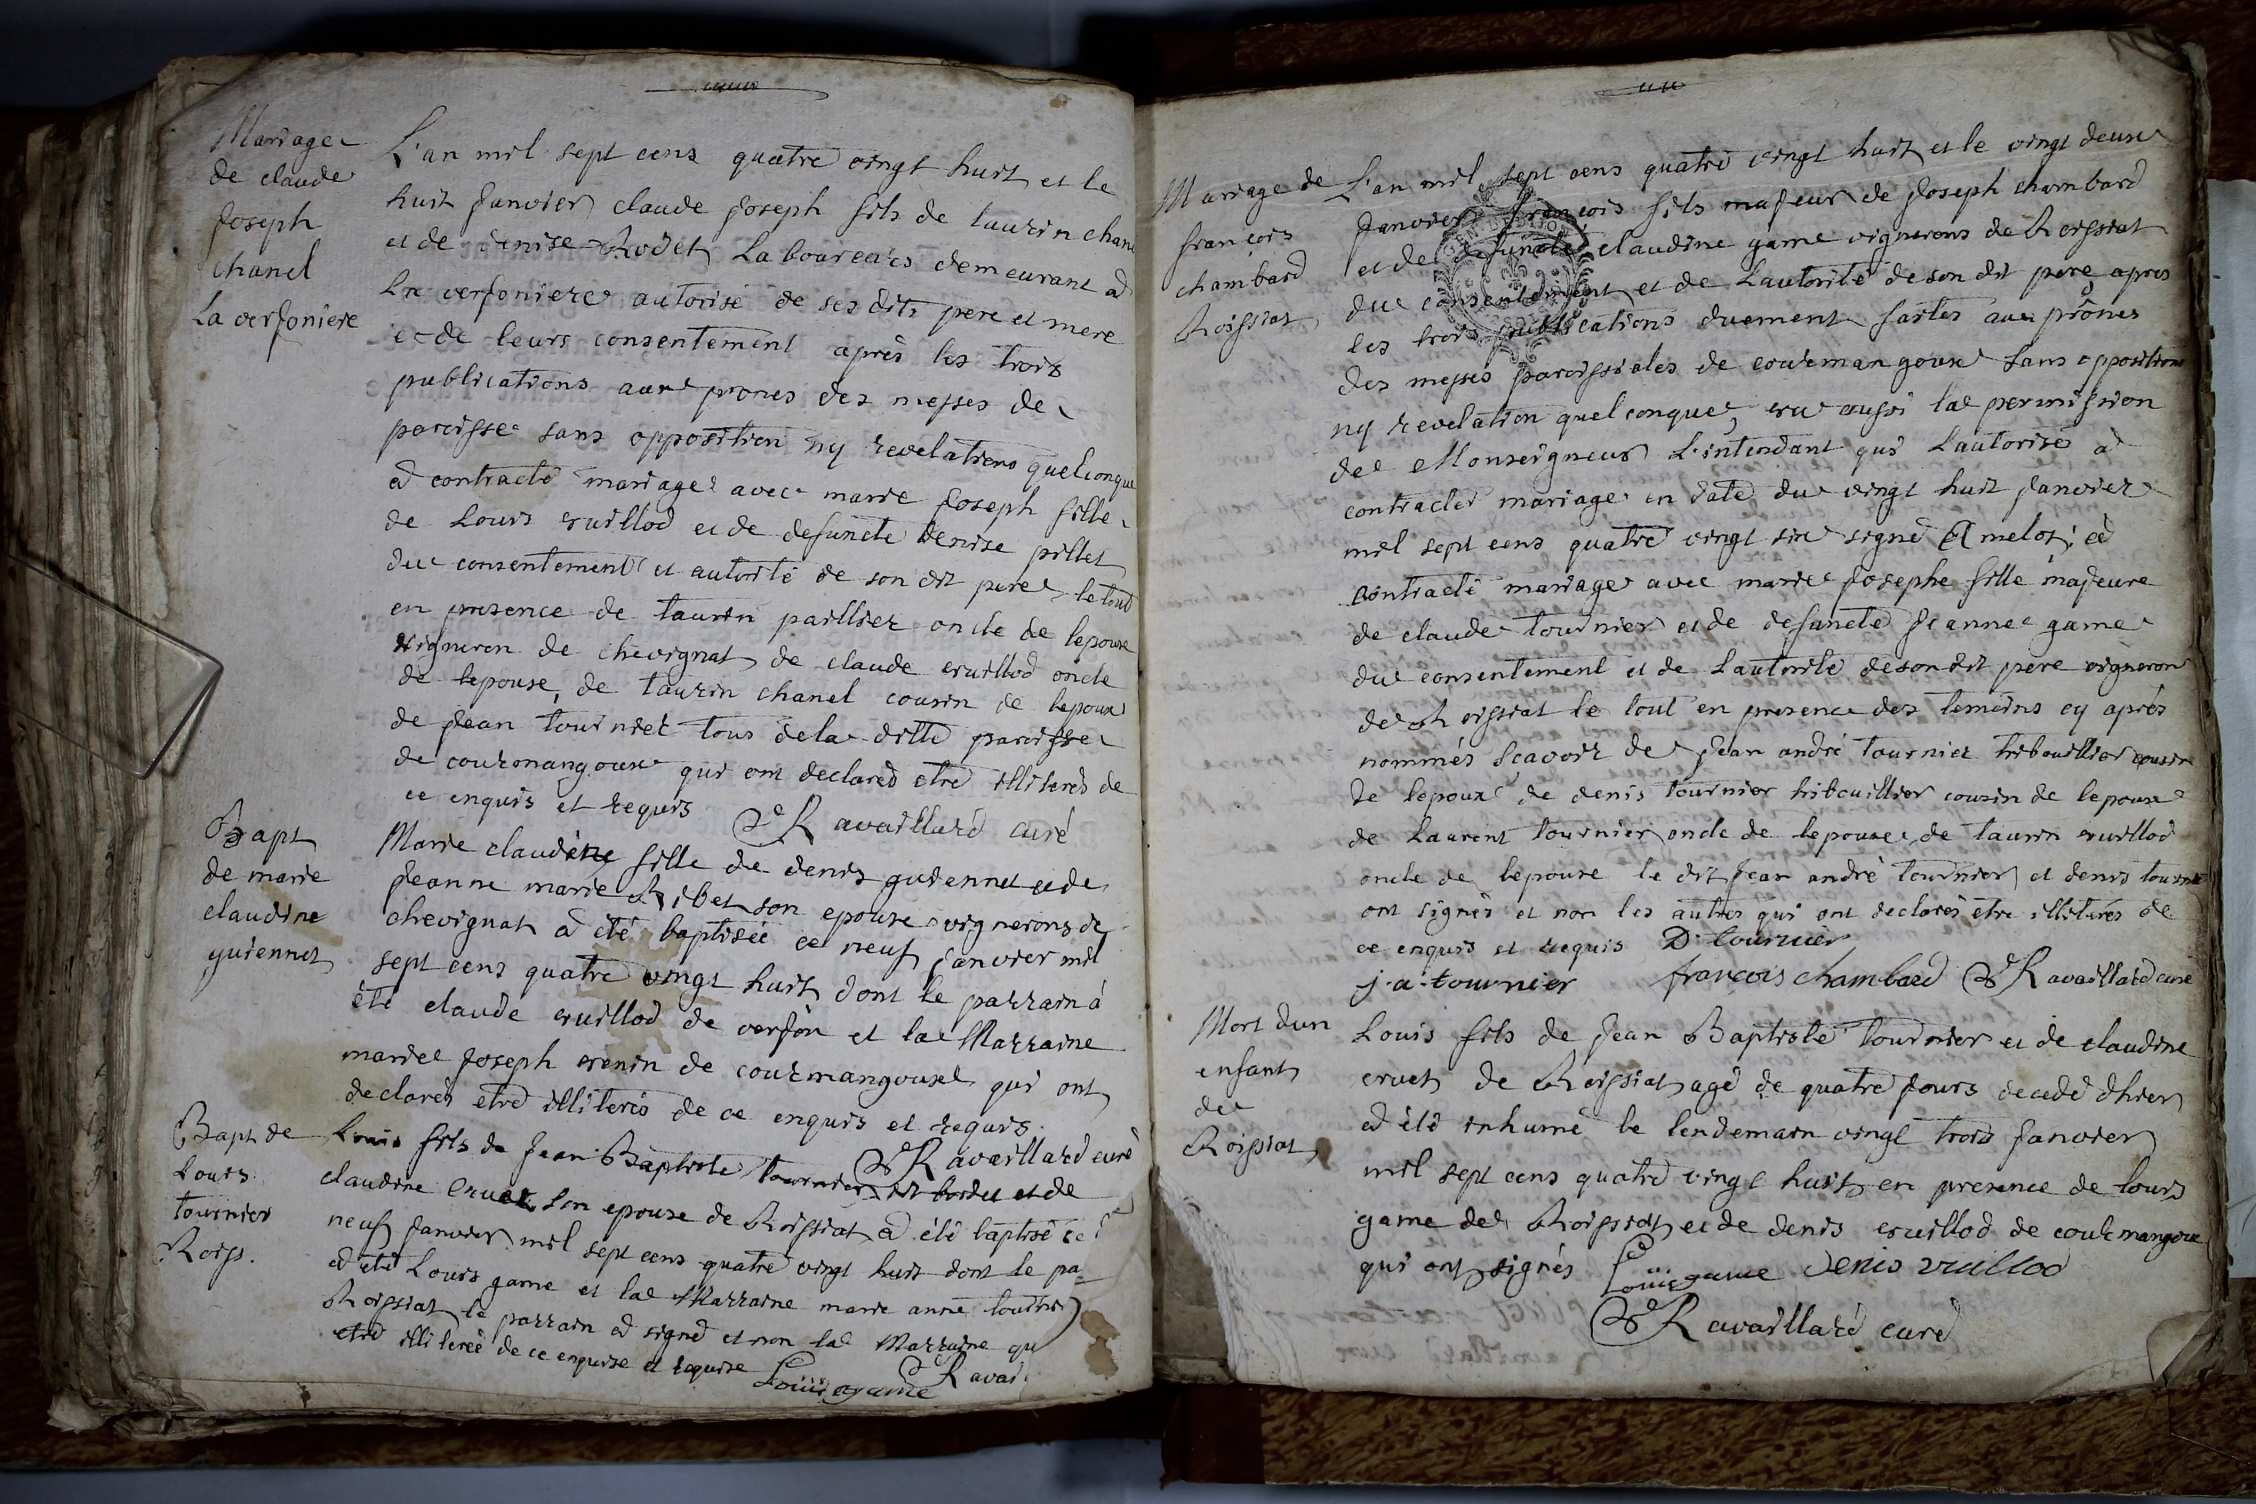 Mariage
de claude
Joseph
chanel
La verjoniere
L'an mil sept cens quatre vingt huit et le
huit Janvier claude Joseph fils de taurin chan
et de denise Rodet Laboureurs demeurant a
La verjoniere autorisé de ses dits pere et mere
et de leurs consentement après les trois
publications aux prones des messes de
paroisse sans opposition ny revelations quelconque
a contracté mariage avec marie Joseph fille
de Louis vuillod et de defuncte denise pillet
du consentement et autorité de son dit pere le tout
en presence de taurin paillier oncle de lepoux
vigneron de chevignat de claude vuillod oncle
de lepouse, de taurin chanel cousin de lepoux
de Jean tournier tous dela ditte paroisse
de courmangoux qui ont declarés etre illiterés de
ce enquis et requis Ravaillard curé
Bapt
de marie
claudine
guiennet
Marie claudine fille de denis guiennet et de
Jeanne marie Ribet son epouse vignerons de
chevignat a été baptisée ce neuf Janvier mil
sept cens quatre vingt huit dont le parrain a
été claude vuillod de verjon et la Marraine
marie Joseph venin de courmangoux qui ont
declarés etre illiterés de ce enquis et requis.
Ravaillard curé
Bapt de
Louis
tournier
Roiss.
Louis fils de Jean Baptiste tournier dit bordet et de
claudine cruet son epouse de Roissiat a été baptisé ce
neuf Janvier mil sept cens quatre vingt huit dont le pa
a été Louis game et la Marraine marie anne tournier
Roissiat le parrain a signé et non la Marraine qu
etre illiterée de ce enquise et requise Louis game Ravai
Mariage de
françois
chambard
Roissiat
L'an mil sept cens quatre vingt huit et le vingt deux
Janvier françois fils majeur de Joseph chambard
et de defuncte claudine game vignerons de Roissiat
du consentement et de Lautorité de son dit pere apres
les trois publications duement faites aux prônes
des messes paroissiales de courmangoux sans opposition
ny revelation quelconque, vu aussi la permission
de Monseigneur L'intendant qui Lautorise a
contracter mariage en date du vingt huit Janvier
mil sept cens quatre vingt six signé Amelot; a
contracté mariage avec marie Josephe fille majeure
de claude tournier et de defuncte Jeanne game
du consentement et de Lautorité de son dit pere vigneron
de Roissiat le tout en presence des temoins cy après
nommés Sçavoir de Jean andré tournier tribouillier cousin
de lepoux de denis tournier tribouillier cousin de lepoux
de Laurent tournier oncle de lepouse de taurin vuillod
oncle de lepouse le dit Jean andré tournier et denis tournie
ont signés et non les autres qui ont declarés etre illiterés de
ce enquis et requis D. tournier
j. a. tournier françois chambard Ravaillard curé
Mort dun
enfant
de
Roissiat
Louis fils de Jean Baptiste tournier et de claudine
cruet de Roissiat agé de quatre Jours decedé dhier
a été inhumé le lendemain vingt trois Janvier
mil sept cens quatre vingt huit en presence de louis
game de Roissiat et de denis vuillod de courmangoux
qui ont signés Louis game denis vuillod
Ravaillard curé